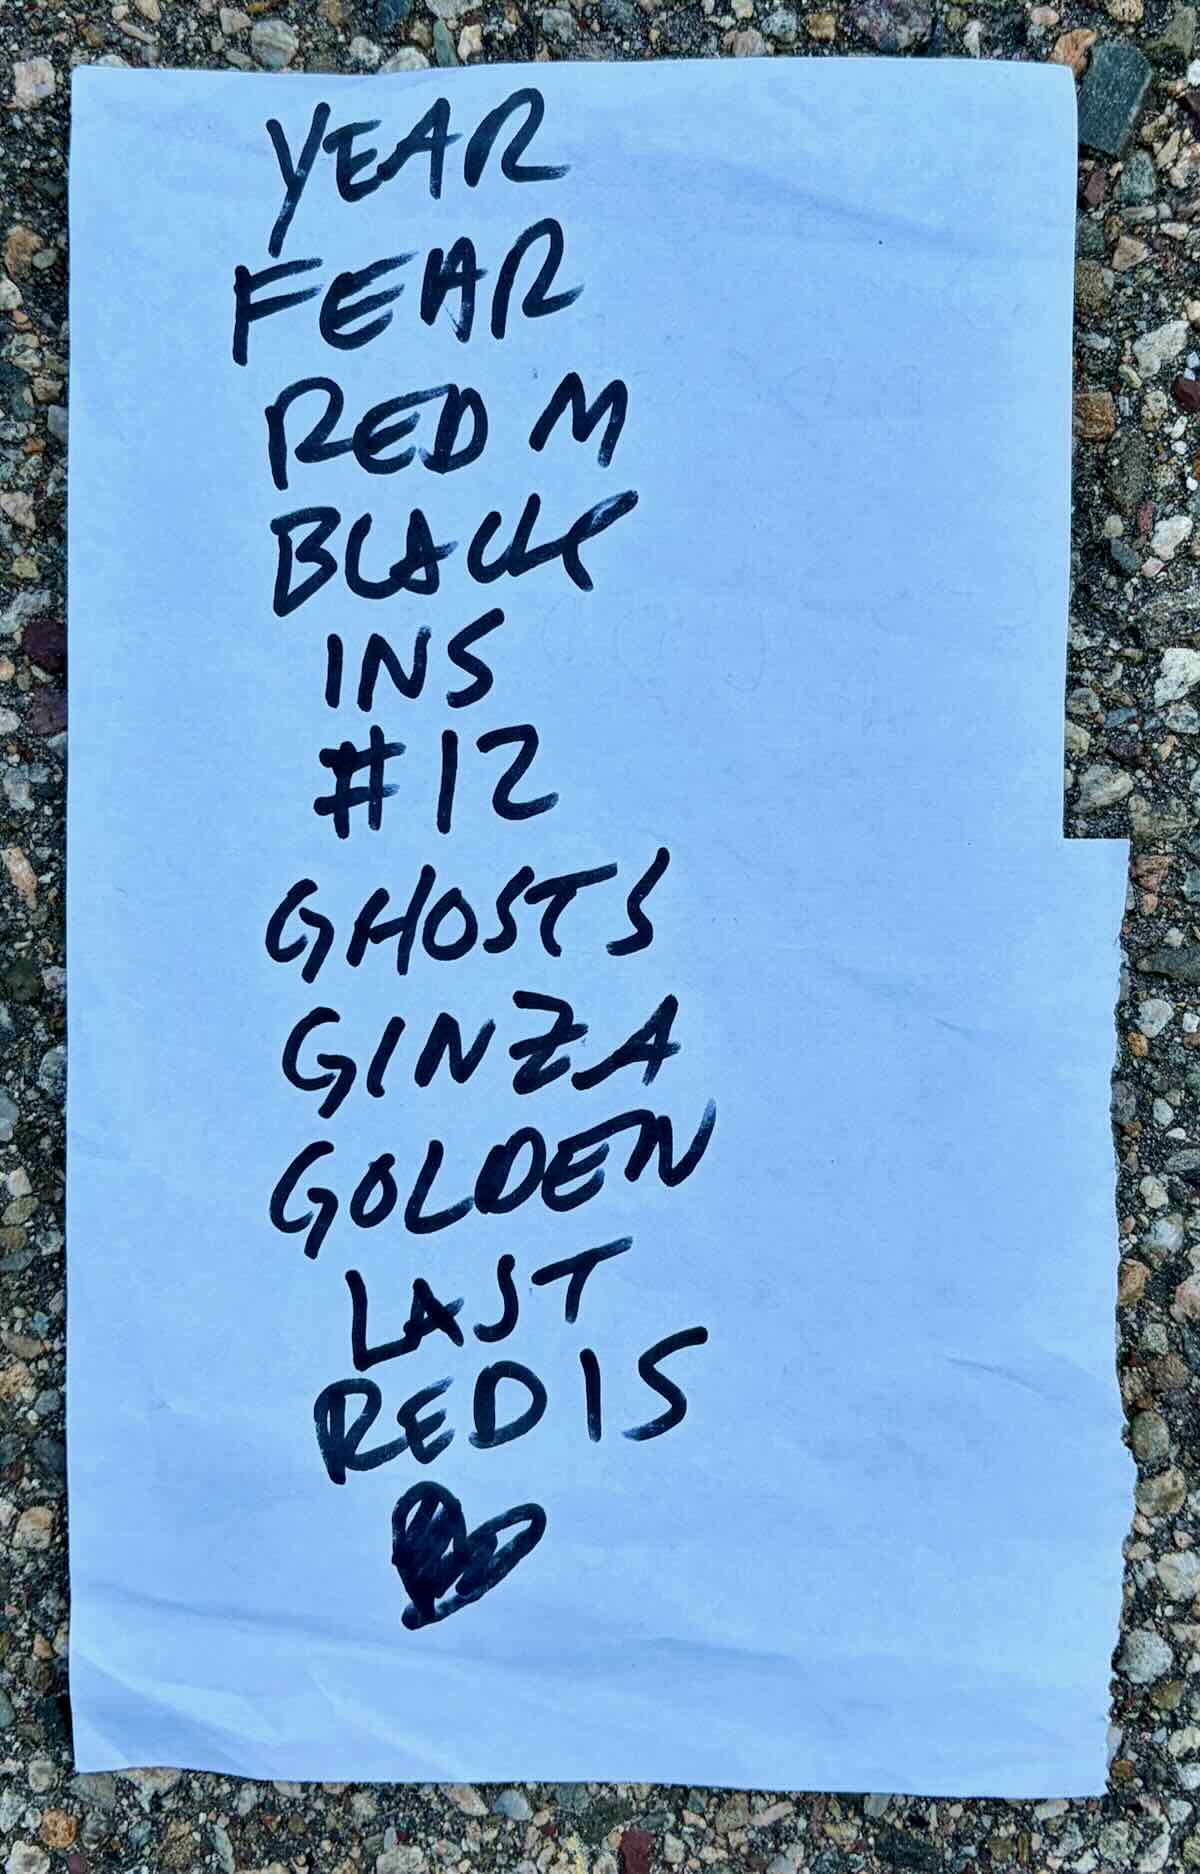 YEAR
FEAR
RED M
BLACK
INS
#12
GHOSTS
GINZA
GOLDEN
LAST
RED IS